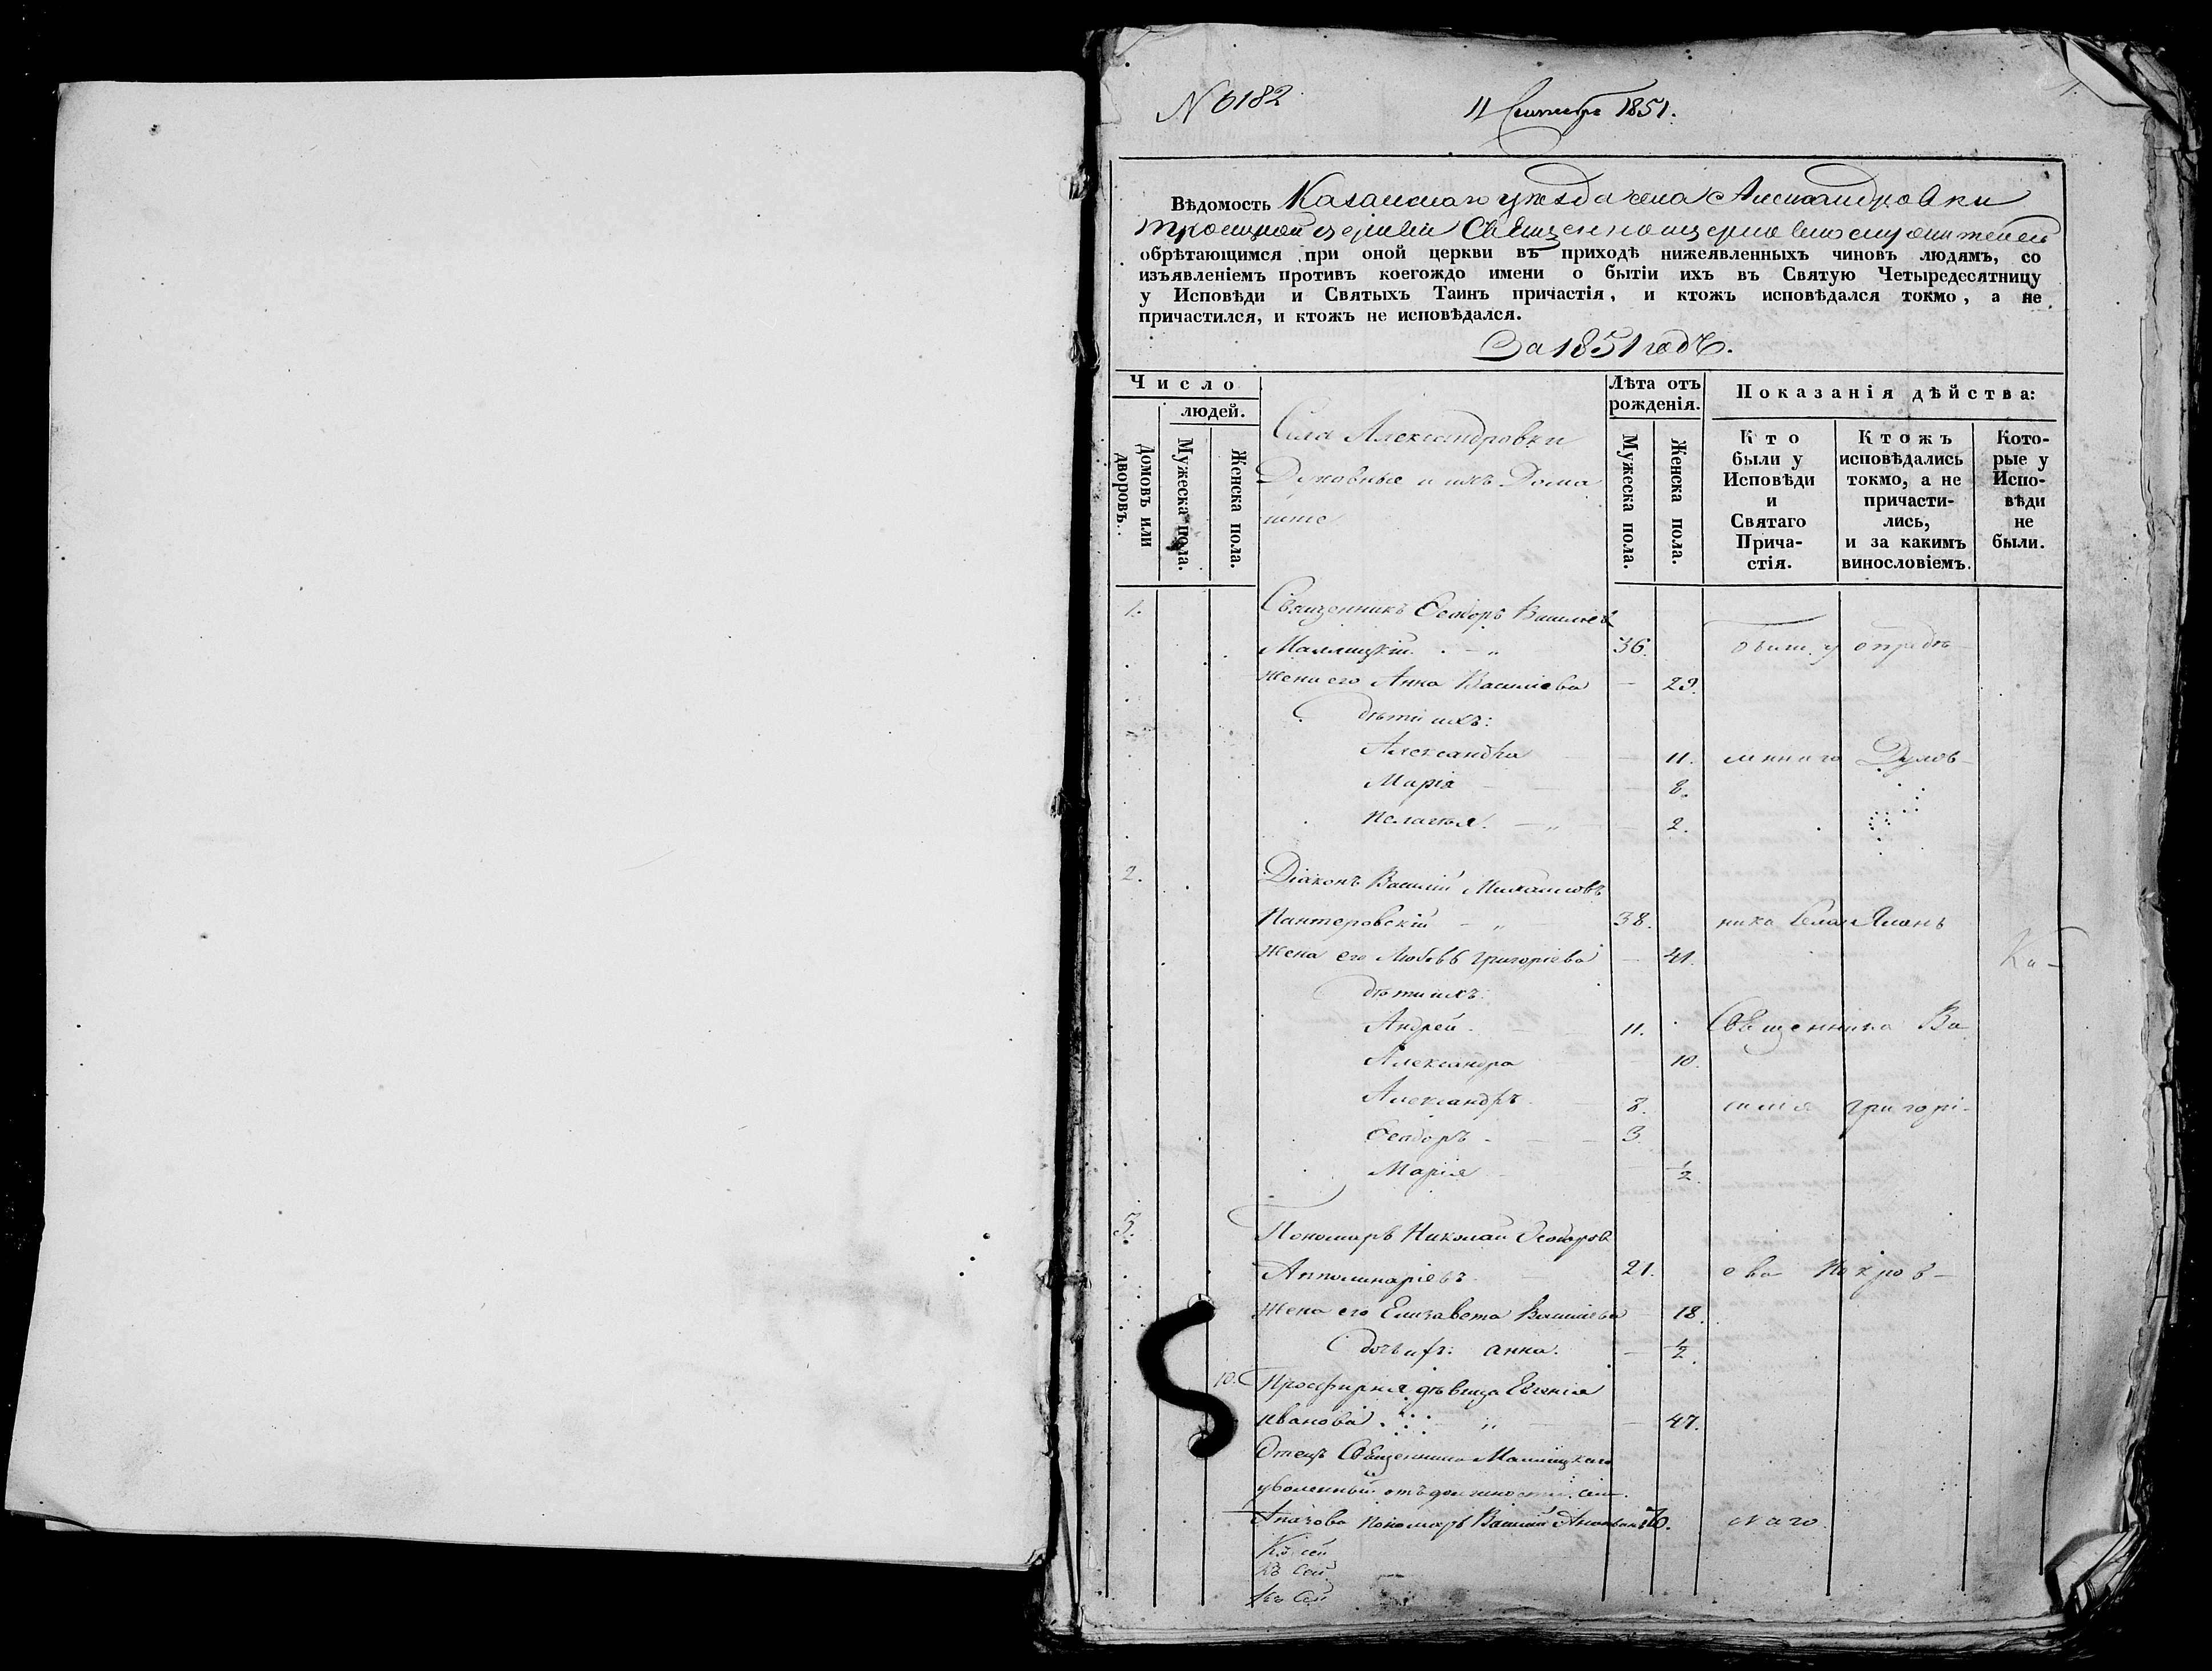 N 6182
11 Сентябр 1851.
Вѣдомость Казанскаго уѣзда села Александровки
Троицкой церкви Священноцерковнослужителей
обрѣтающимся при оной церкви въ приходѣ нижеявленныхъ чиновъ людямъ, со
изъявленіемъ противъ коегождо имени о бытіи ихъ въ Святую Четыредесятницу
у Исповѣди и Святыхъ Таинъ причастія, и ктожъ исповѣдался токмо, а не
причастился, и ктожъ не исповѣдался.
За 1851 годъ.
Число
людей.
Домовъ или дворовъ.
Мужеска пола.
Женска пола.
Села Александровки
Духовные и ихъ Дома
шніе
Лѣта отъ
рожденія.
Мужеска пола.
Женска пола.
Показанія дѣйства:
Кто
были у
Исповѣди
и
Святаго
Прича-
стія.
Ктожъ
исповѣдались
токмо, а не
причасти-
лись,
и за какимъ
винословіемъ.
Кото-
рые у
Испо-
вѣди
не
были.
1. Священникъ Ѳеодоръ Васильев
Малмицкій 36.
Жена его Анна Васильева 29.
дѣти ихъ:
Александра 11. мннаго Духов-
Марія 8.
Пелагія 2.
2. Діаконъ Василій Михаиловъ
Пантеровскій 38. ника Села
Жена его Любовь Григоріева 41. Ка-
дѣти ихъ:
Андрей 11. Священника Ва
Александра 10.
Александръ 8. силія Григорі-
Ѳеодоръ 3
Марія 1/2
3. Пономарь Николай Ѳеодоров
Апполинаріевъ 21. ева Покров-
Жена его Елизавета Васильева 18.
дочь ихъ: Анна. 1/2.
10. Просфирня дѣвица Евгенія
Иванова 47.
Отецъ Священника Малмицкаго
уволенный отъ должности сел.
Апазова Пономарь Василій скаго
Къ сей
Къ Сей
Къ Сей